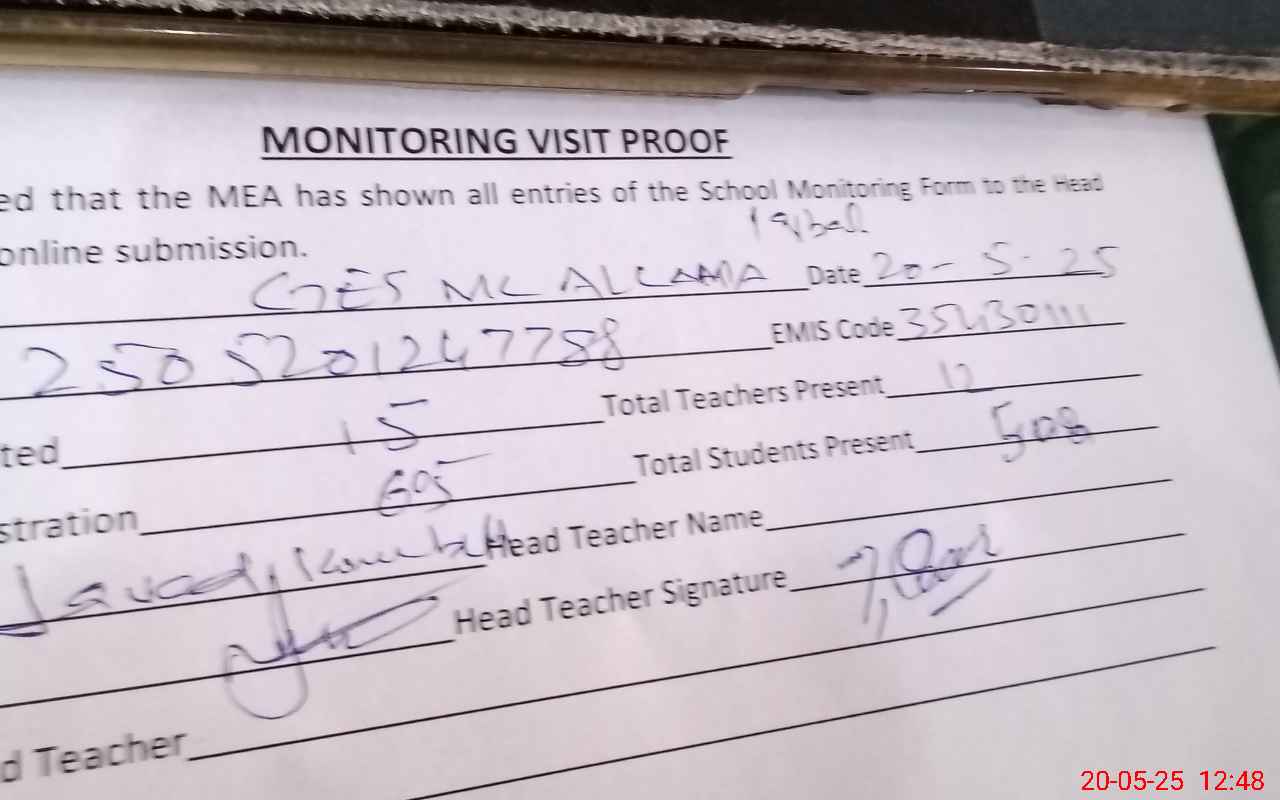 MONITORING VISIT PROOF
ed that the MEA has shown all entries of the School Monitoring Form to the Head
online submission.
GES MC ALLAMA Iqbal Date 20-5-25
2505201247788 EMIS Code 35430111
ted 15 Total Teachers Present 12
stration 695 Total Students Present 508
Javed Head Teacher Name
Head Teacher Signature
d Teacher
20-05-25 12:48